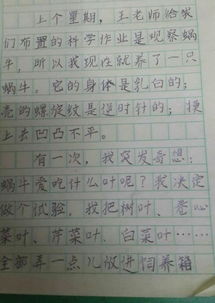 上个星期，王老师给我
们布置的科学作业是观察蜗
牛，所以我现在就养了一只
蜗牛。它的身体是乳白的；
壳的螺旋纹是逆时针的；摸
上去凹凸不平。
有一次，我突发奇想：
蜗牛爱吃什么叶呢？我决定
做个试验，我把树叶、卷心
菜叶、芹菜叶、白菜叶……
全部弄一点儿放进饲养箱